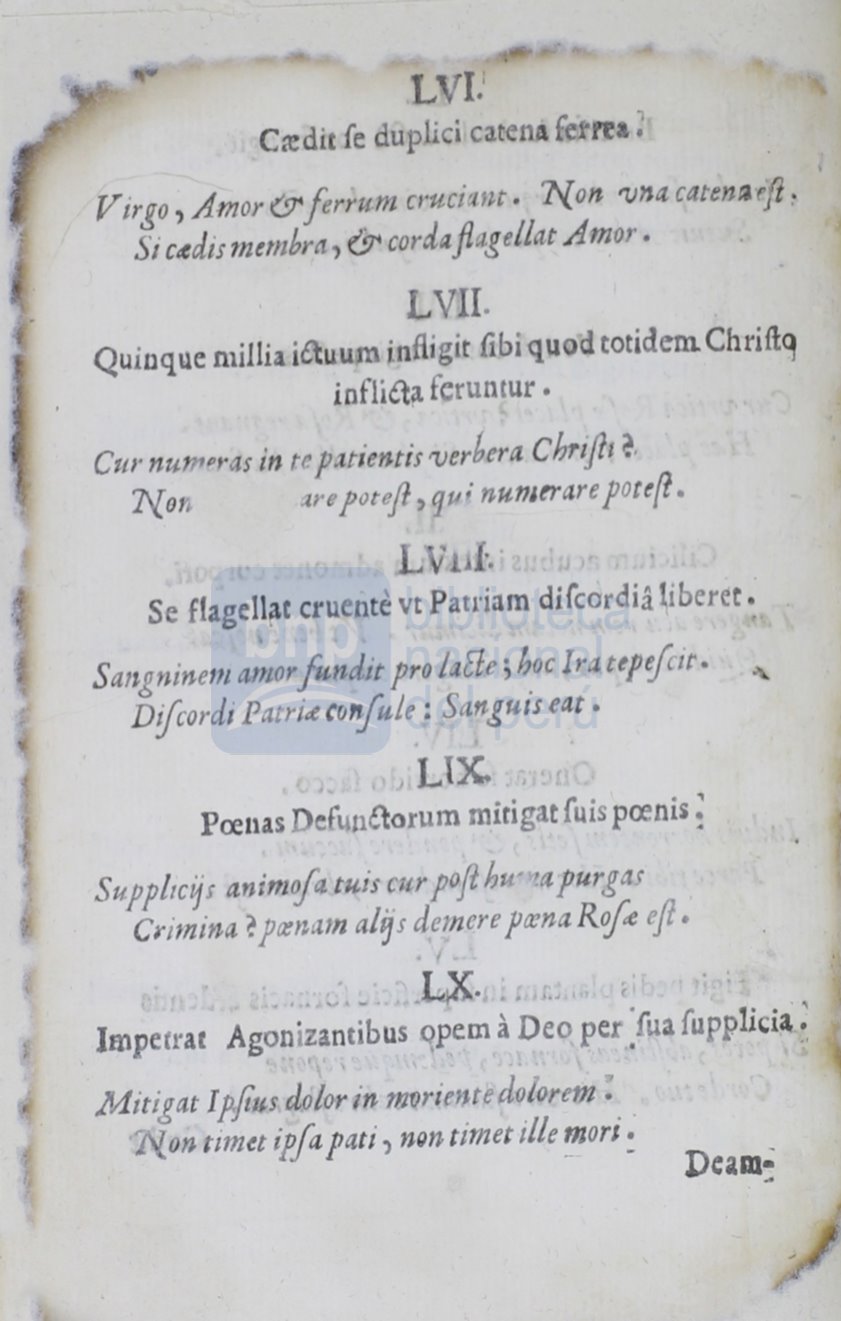 LVI.
Cædit ſe duplici catena ferrea.
Virgo, Amor & ferrum cruciant. Non vna catena eſt.
Si cædis membra, & corda flagellat Amor.
LVII.
Quinque millia ictuum infligit ſibi quod totidem Chriſto
inflicta feruntur.
Cur numeras in te patientis verbera Chriſti?
Non are poteſt, qui numerare poteſt.
LVIII.
Se flagellat cruentè vt Patriam diſcordiâ liberet.
Sangninem amor fundit pro lacte; hoc Ira tepeſcit.
Diſcordi Patriæ conſule: Sanguis eat.
LIX.
Pœnas Defunctorum mitigat ſuis pœnis.
Supplicijs animoſa tuis cur poſt humana purgas
Crimina? pœnam alijs demere pœna Roſæ eſt.
LX.
Impetrat Agonizantibus opem à Deo per ſua ſupplicia.
Mitigat Ipſius dolor in moriente dolorem.
Non timet ipſa pati, non timet ille mori.
Deam-
bnp biblioteca
nacional
del perú